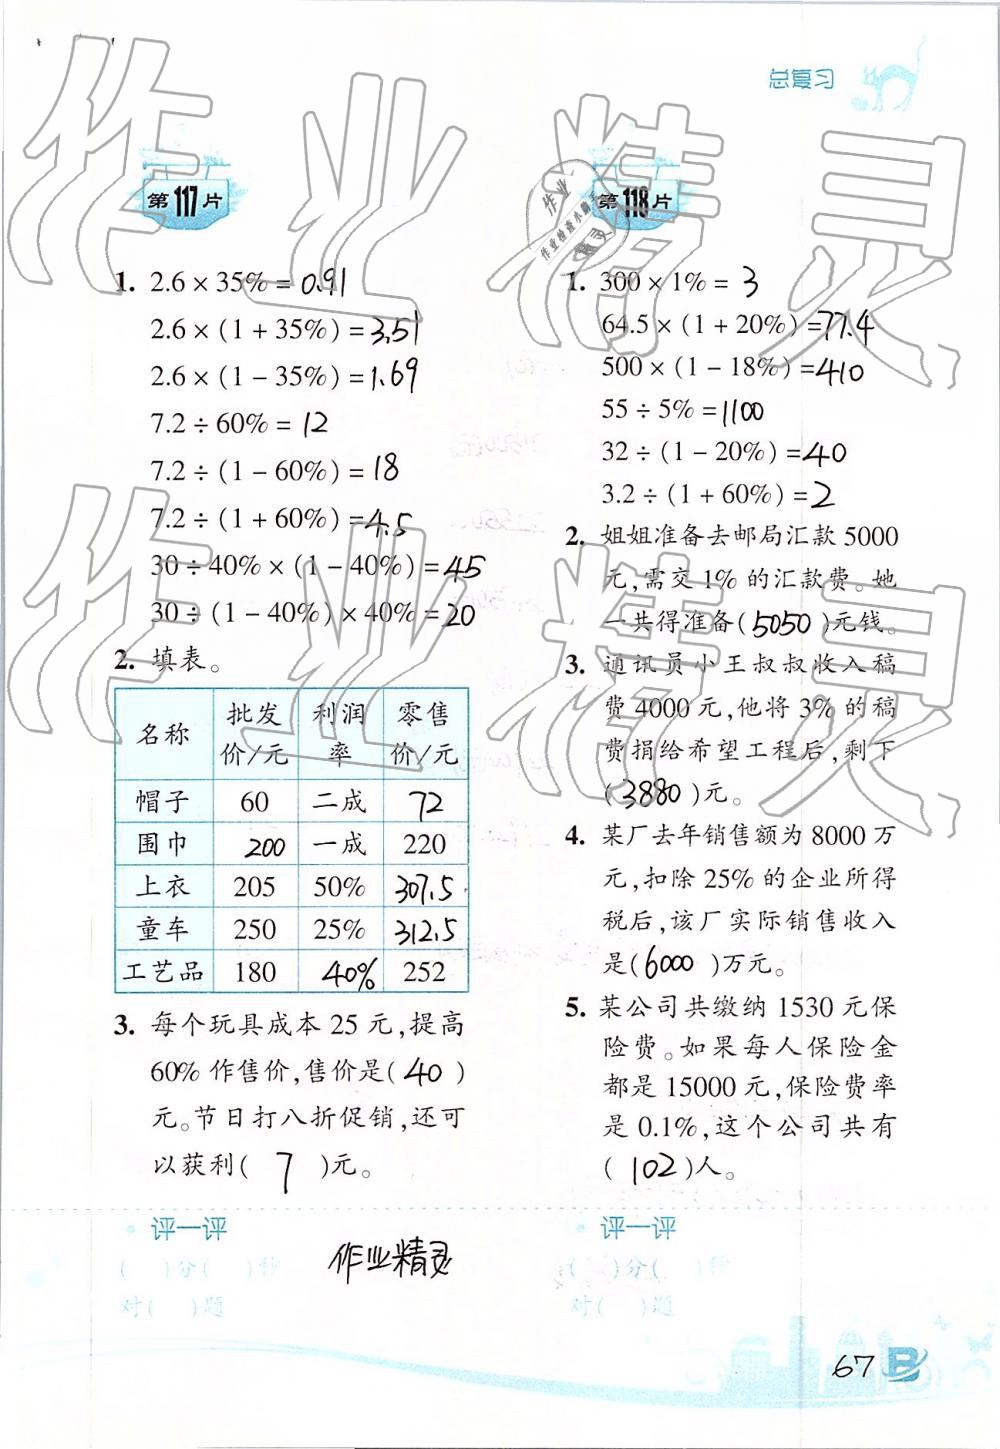 总复习
第117片
1. 2.6 × 35% = 0.91
2.6 × (1 + 35%) = 3.51
2.6 × (1 - 35%) = 1.69
7.2 ÷ 60% = 12
7.2 ÷ (1 - 60%) = 18
7.2 ÷ (1 + 60%) = 4.5
30 ÷ 40% × (1 - 40%) = 45
30 ÷ (1 - 40%) × 40% = 20
2. 填表。
名称 批发价/元 利润率 零售价/元
帽子 60 二成 72
围巾 200 一成 220
上衣 205 50% 307.5
童车 250 25% 312.5
工艺品 180 40% 252
3. 每个玩具成本 25 元,提高
60% 作售价,售价是( 40 )
元。节日打八折促销,还可
以获利( 7 )元。
评一评
( )分( )秒
对( )题
第118片
1. 300 × 1% = 3
64.5 × (1 + 20%) = 77.4
500 × (1 - 18%) = 410
55 ÷ 5% = 1100
32 ÷ (1 - 20%) = 40
3.2 ÷ (1 + 60%) = 2
2. 姐姐准备去邮局汇款 5000
元,需交 1% 的汇款费。她
一共得准备( 5050 )元钱。
3. 通讯员小王叔叔收入稿
费 4000 元,他将 3% 的稿
费捐给希望工程后,剩下
( 3880 )元。
4. 某厂去年销售额为 8000 万
元,扣除 25% 的企业所得
税后,该厂实际销售收入
是( 6000 )万元。
5. 某公司共缴纳 1530 元保
险费。如果每人保险金
都是 15000 元,保险费率
是 0.1%,这个公司共有
( 102 )人。
评一评
( )分( )秒
对( )题
作业精灵
67
B
作业精灵
作业精灵
作业
作业检查小助手
精灵